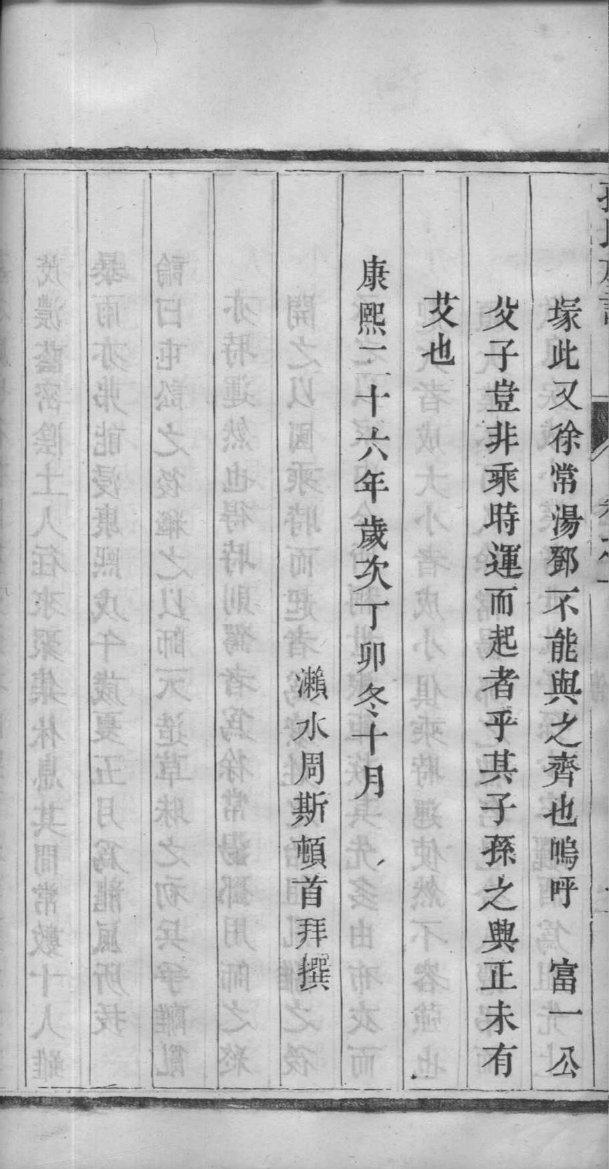 塚此又徐常湯鄧不能與之齊也嗚呼　富一公
父子豈非乘時運而起者乎其子孫之興正未有
艾也
康熙二十六年歲次丁卯冬十月
瀨水周斯頓首拜撰